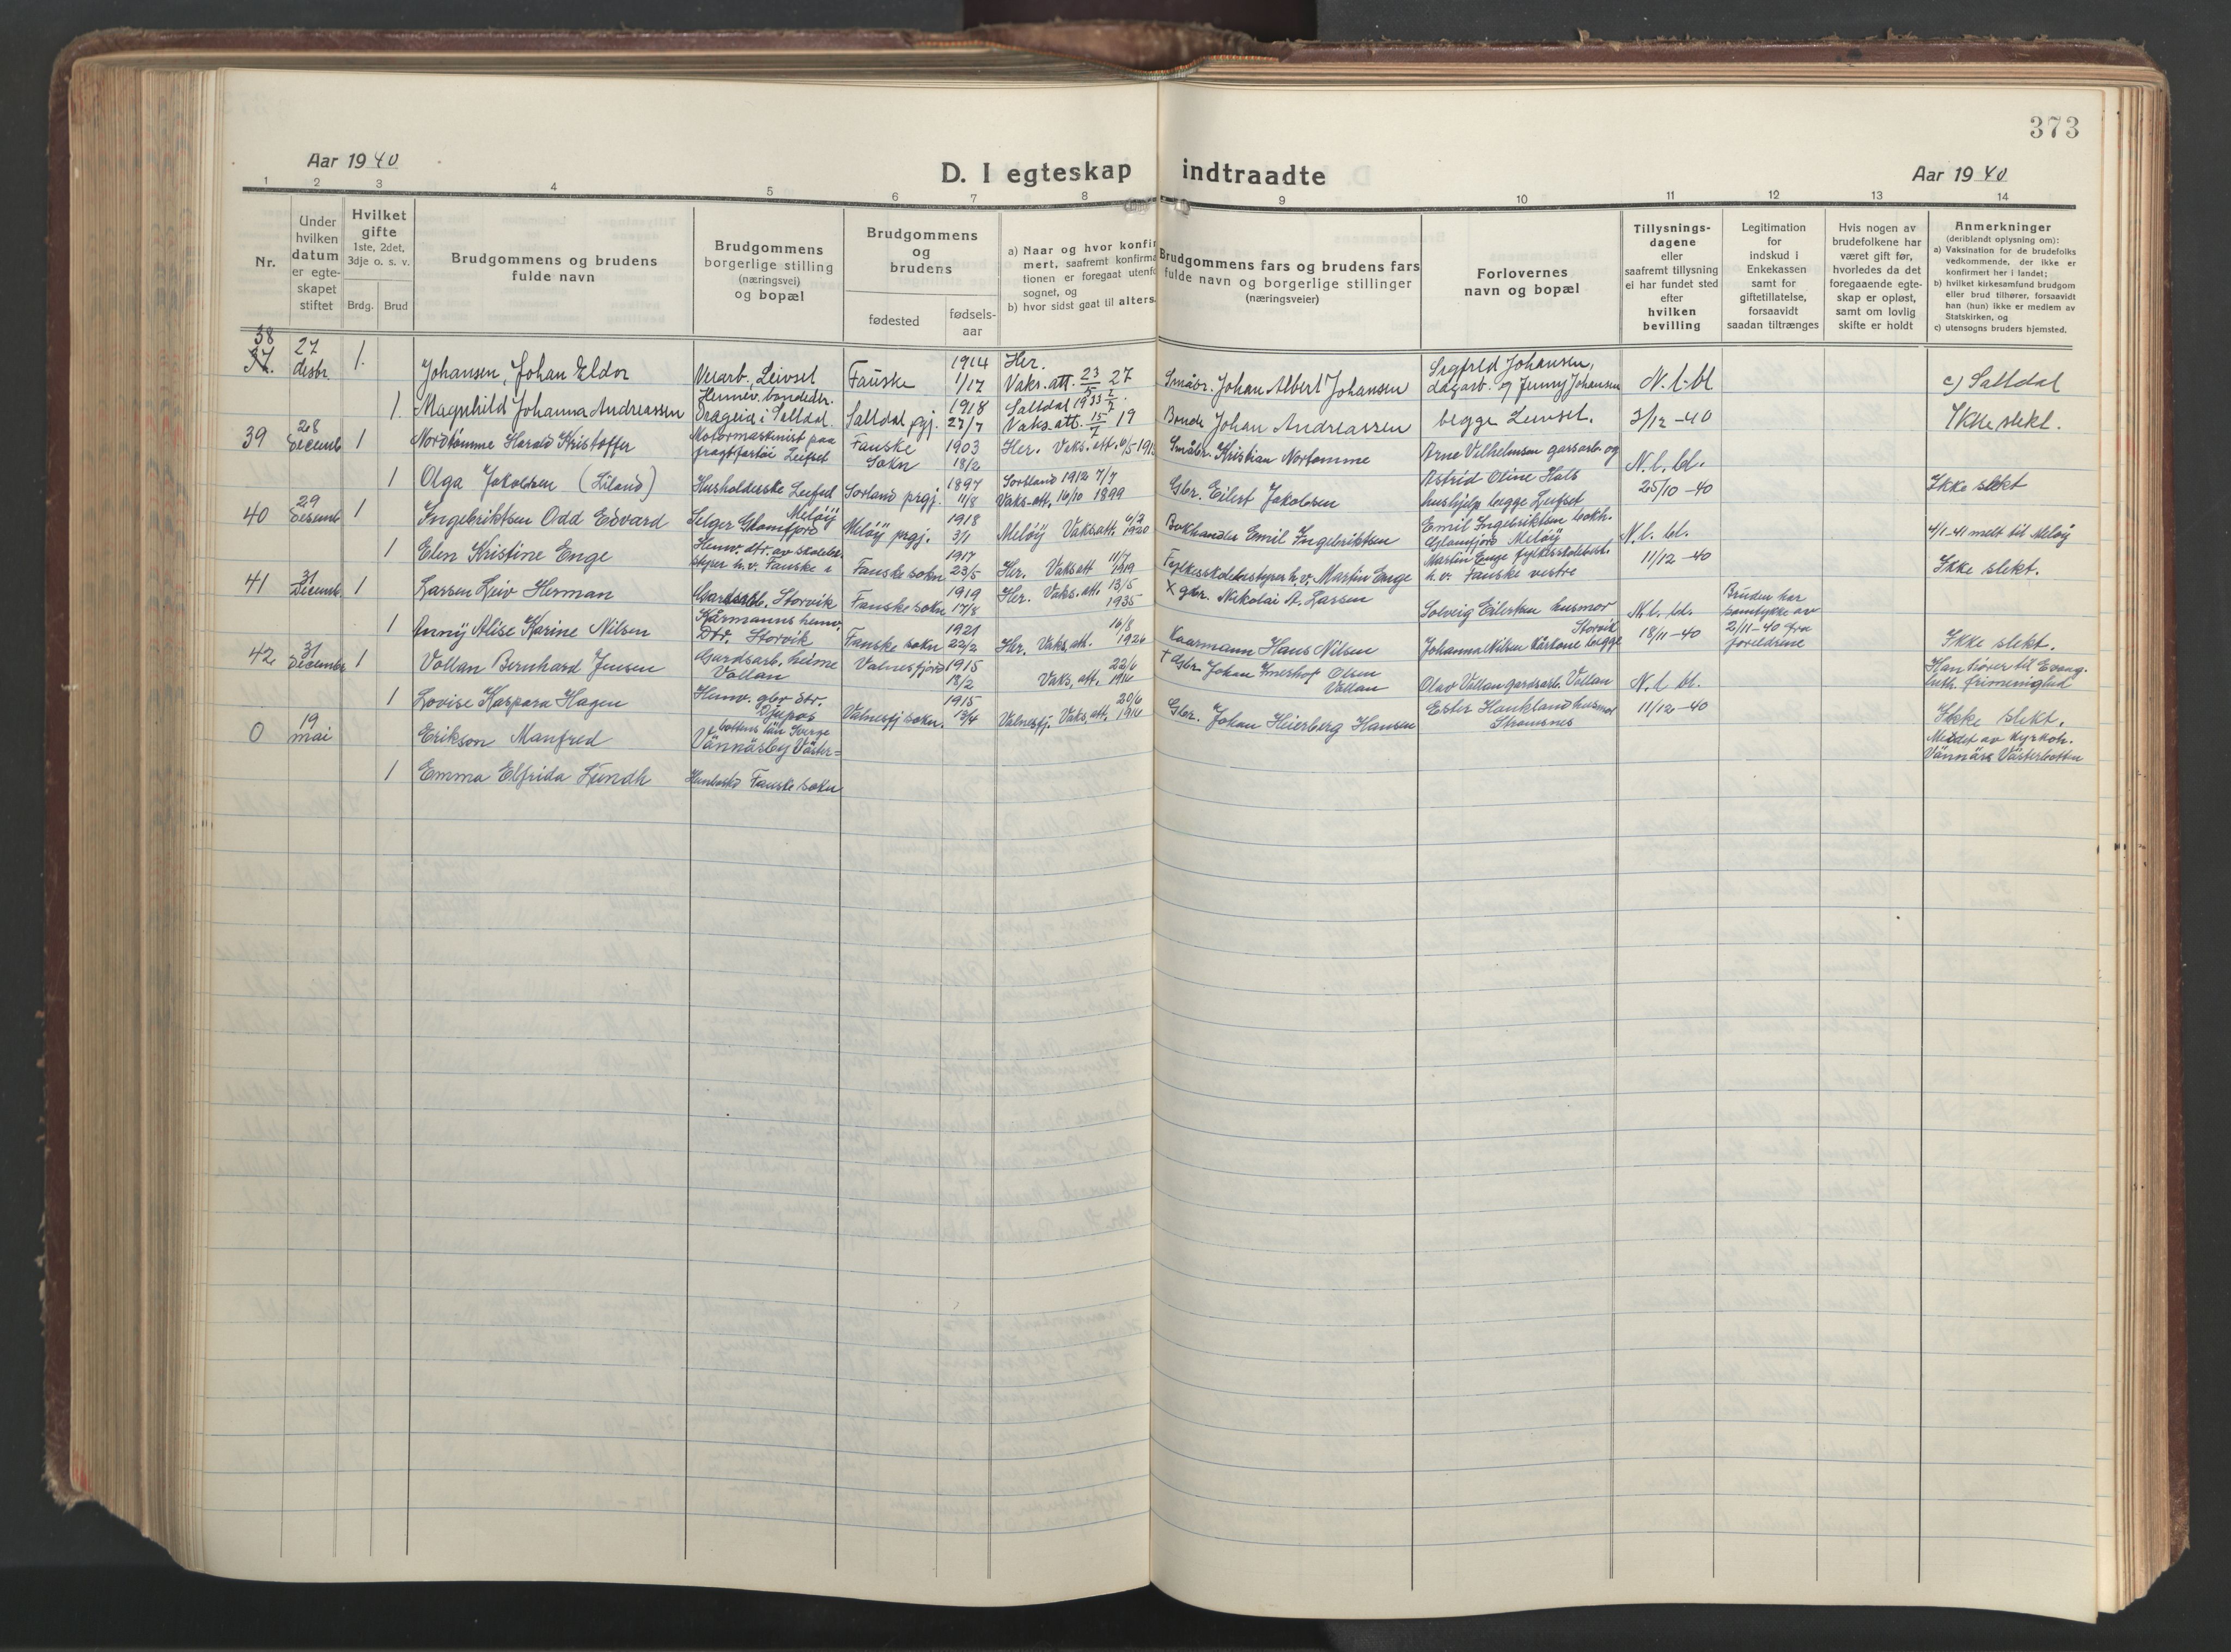 373
Aar 1940
D. I egteskap indtraadte
Aar 1940
1 2 3 4 5 6 7 8 9 10 11 12 13 14
Nr.
Under hvilken datum er egteskapet stiftet
Hvilket gifte
1ste, 2det, 3dje o. s. v.
Brdg. Brud
Brudgommens og brudens fulde navn
Brudgommens borgerlige stilling (næringsvei) og bopæl
Brudgommens og brudens
fødested
fødsels-aar
a) Naar og hvor konfirmert, saafremt konfirmationen er foregaat utenfor sognet, og
b) hvor sidst gaat til alters
Brudgommens fars og brudens fars fulde navn og borgerlige stillinger (næringsveier)
Forlovernes navn og bopæl
Tillysningsdagene eller saafremt tillysning ei har fundet sted efter hvilken bevilling
Legitimation for indskud i Enkekassen samt for giftetillatelse, forsaavidt saadan tiltrænges
Hvis nogen av brudefolkene har været gift før, hvorledes da det foregaaende egteskap er opløst, samt om lovlig skifte er holdt
Anmerkninger
(deriblandt oplysning om):
a) Vaksination for de brudefolks vedkommende, der ikke er konfirmert her i landet;
b) hvilket kirkesamfund brudgom eller brud tilhører, forsaavidt han (hun) ikke er medlem av Statskirken, og
c) utensogns bruders hjemsted.
38 27 desbr. 1. Johansen, Johan Eldor Veiarb., Leivset Fauske 1914 1/17 Her. Vaks. att. 23/5 27 Småbr. Johan Albert Johansen Sigfred Johansen, dagarb. og Jenny Johansen N. l. bl c) Saltdal
1. Magnhild Johanna Andreassen Hennev. bondedtr. Drageid i Saltdal. Saltdal pgj. 1918 27/7 Saltdal 1933 2/7. Vaks. att. 15/7 19 Bonde Johan Andreassen begge Leivset. 3/12-40 Ikke slekt.
39 28 Decemb 1 Nordtømme Harald Kristoffer Motormaskinist paa fragtfartøi Leifset Fauske Sokn 1903 18/2 Her. Vaks. att. Småbr. Kristian Nortømme Arne Vilhelmsen gardsarb. og N. l. bl.
1 Olga Jakobsen (Liland) Husholderske Leifset Sortland prgj. 1897 11/8 Sortland 1912 7/7 Vaks. att. 16/10 1899 Gbr. Eilert Jakobsen Astrid Oline Hals hushjelp begge Leifset 25/10-40 Ikke slekt
40 29 Desemb 1 Ingebriktsen Odd Edvard Selger Glomfjord Meløy Meløy prgj. 1918 3/1 Meløy Vaks att. 6/2 1920 Bokhandler Emil Ingebriktsen Emil Ingebriktsen bokh. Glomfjord Meløy N. l. bl. 4/1-41 melt til Meløy
1 Elen Kristine Enge Hennv. dtr. av skolebestyrer h.v. Fauske Fauske sokn 1917 23/5 Her. Vaks att 11/7 1919 Fylkesskolebestyrer h.v. Martin Enge Martin Enge fylkesskolebest. h.v. Fauske vestre 11/12-40 Ikke slekt.
41 31 Decemb. 1 Larsen Leiv Herman Gardsarb. Storvik Fauske sokn 1919 17/8 Her. Vaks. att. 13/5 1935 X gbr. Nikolai A. Larsen Solveig Eilertsen husmor Storvik N. l. bl. Bruden har samtykke av 2/11-40 fra foreldrene
1 Anny Alise Karine Nilsen Kårmanns hennv. Dtr. Storvik Fauske sokn 1921 22/2 Her. Vaks. att. 16/8 1926 Kaarmann Hans Nilsen Johanna Nilsen Kårkone begge 18/11-40 Ikke slekt.
42 31 Decembr 1 Vollan Bernhard Jensen Gardsarb. heime Vollan Valnesfjord 1915 18/2 Vaks. att. 22/6 1916 † Gbr. Johan Imerhof Olsen Vollan Olav Vollan gardsarb. Vollan N. l. bl. Han hører til Evang. luth. frimenighed
1 Lovise Kaspara Hagen Hennv. gbr dtr. Djupos Valnesfj sokn. 1915 13/4 Valnesfj. Vaks. att. 20/6 1916 Gbr. Johan Heierberg Hansen Ester Haukland husmor Straumsnes 11/12-40 Ikke slekt.
0 19 mai Erikson Manfred Vännäsby Väster=bottens län Sverge Meldet av Kyrkoh. Vännäs Västerbotten
1 Emma Elfrida Lundh Fauske sokn